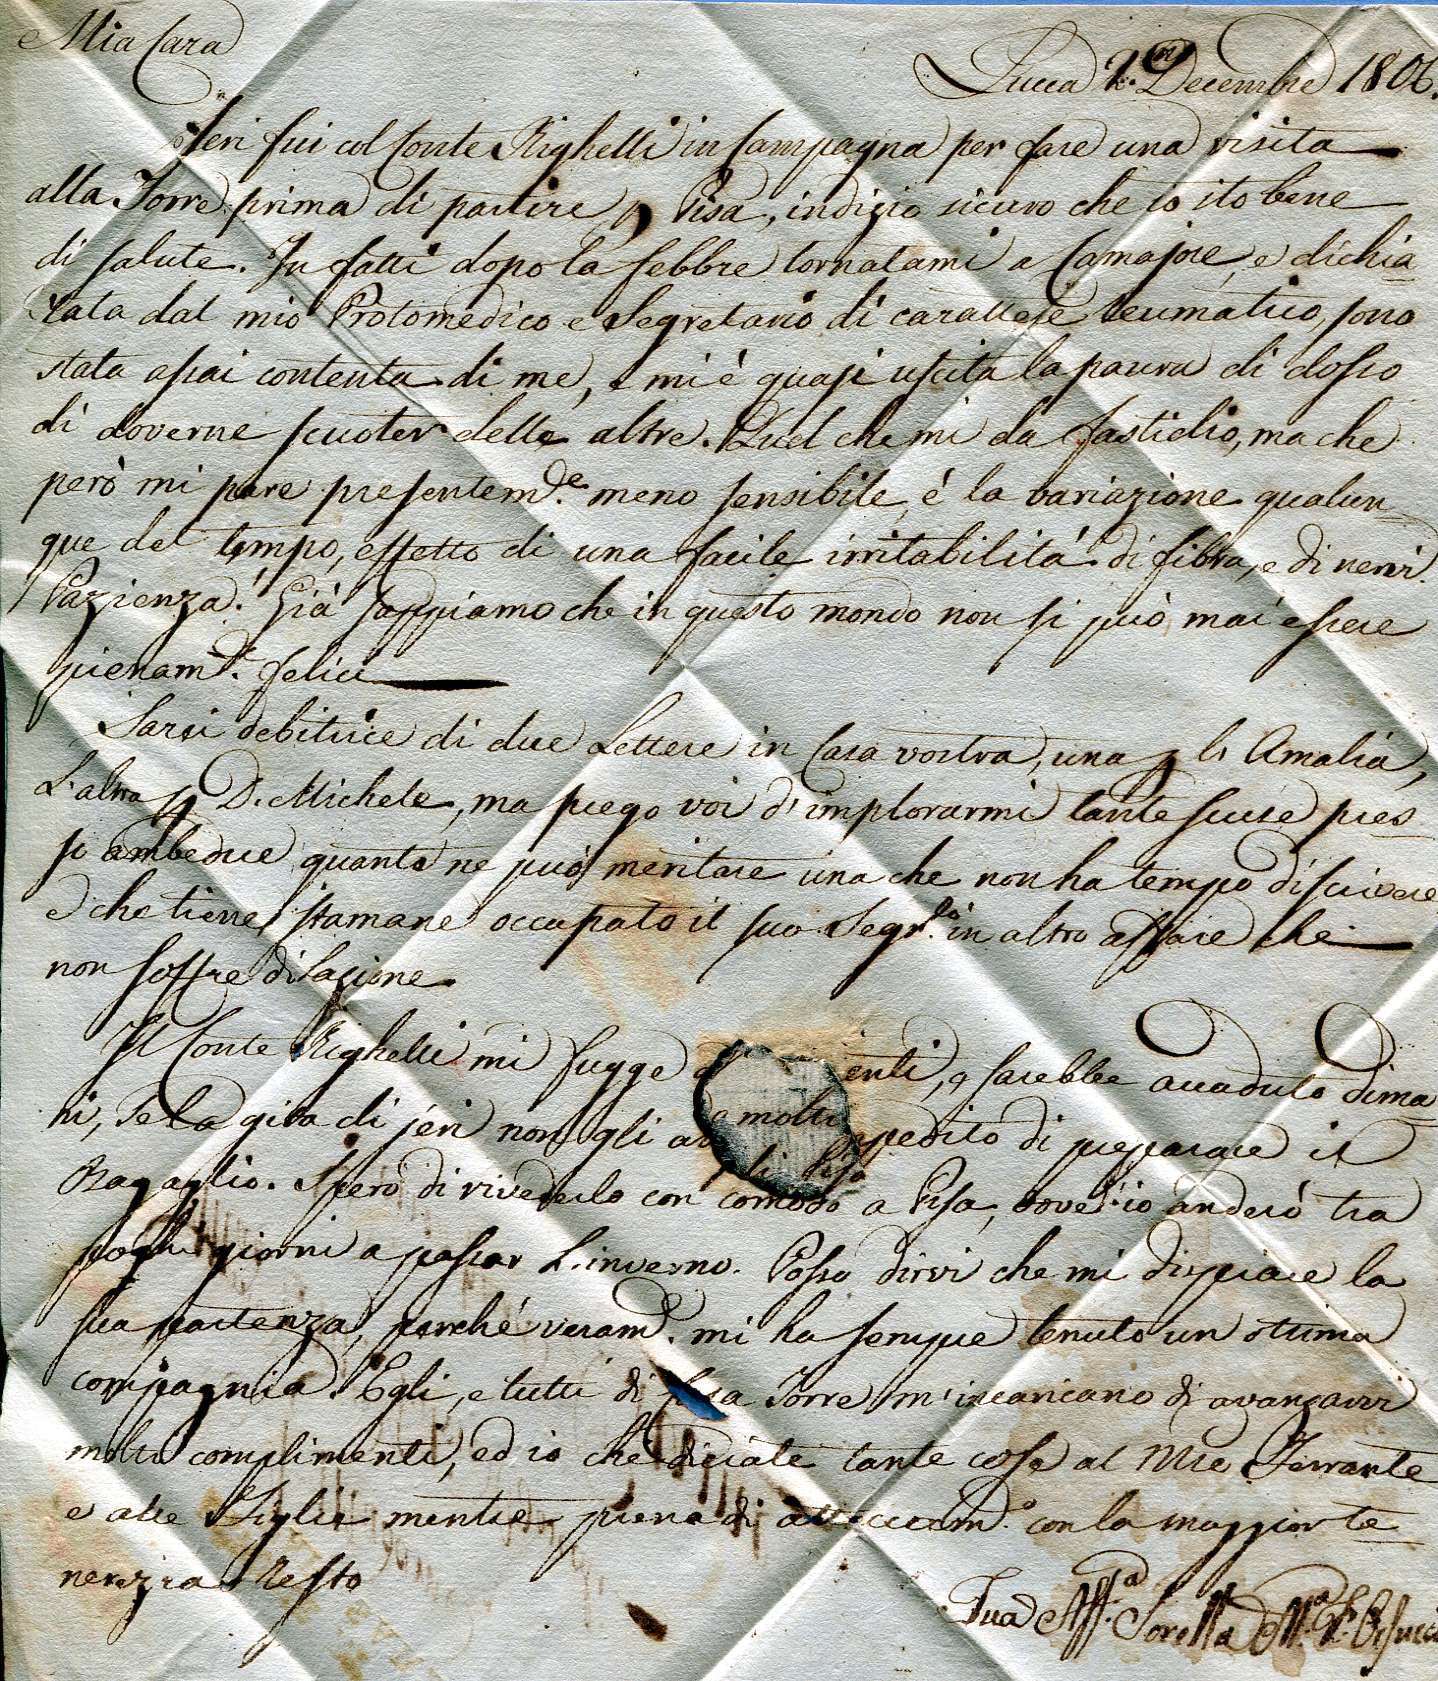 Mia Cara
Lucca 2. Decembre 1806.
Jeri fui col Conte Righetti in Campagna per fare una visita
alla Torre prima di partire p Pisa, indizio sicuro che io sto bene
di salute. In fatti dopo la febbre tornatami a Camajore, e dichia
rata dal mio Protomedico e Segretario di carattere reumatico, sono
stata assai contenta di me, e mi è quasi uscita la paura di dosso
di doverne scuoter delle altre. Quel che mi da fastidio, ma che
però mi pare presentem.e meno sensibile, é la variazione qualun
que del tempo, effetto di una facile irritabilitá di fibra, e di nervi.
Pazienza! Già sappiamo che in questo mondo non si può mai essere
pienam.e felici
Sarei debitrice di due Lettere in Casa vostra, una p l' Amalia,
L'altra p D. Michele, ma prego voi d'implorarmi tante scuse pres
so ambedue quante ne può meritare una che non ha tempo di scrivere
e che tiene stamane occupato il suo Segr.io in altro affare che
non soffre dilazione.
Il Conte Righetti mi fugge enti, sarebbe accaduto dima
ni, se la gita di jeri non gli av molti pedito di preparare il
Bagaglio. Spero di rivederlo con comodo a Pisa, dove io anderó tra
pochi giorni a passar L'inverno. Posso dirvi che mi dispiace la
sua partenza, perché veram.e mi ha sempre tenuto un ottima
compagnia. Egli, e tutti di Torre m'incaricano di avanzarvi
molti complimenti, ed io che diciate tante cose al Ferrante
e alle Figlie mentre piena di attaccam.o con la maggior te
nerezza Resto
Tua Aff.a Sorella